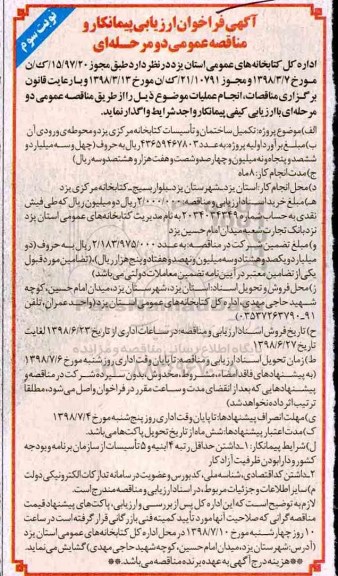 نوبت سوم
آگهی فراخوان ارزیابی پیمانکار و
مناقصه عمومی دو مرحله‌ای
اداره کل کتابخانه‌های عمومی استان یزد در نظر دارد طبق مجوز ۱۵/۹۷/۲۰/ک/ن
مورخ ۱۳۹۸/۳/۷ و مجوز ۲۱/۱۰۷۹۱/ک/ن مورخ ۱۳۹۸/۳/۱۳ و با رعایت قانون
برگزاری مناقصات، انجام عملیات موضوع ذیل را از طریق مناقصه عمومی دو
مرحله‌ای با ارزیابی کیفی پیمانکار واجد شرایط واگذار نماید.
الف) موضوع پروژه: تکمیل ساختمان و تأسیسات کتابخانه مرکزی یزد و محوطه‌ی ورودی آن
ب) مبلغ برآورد اولیه پروژه: به عدد ۴۳۶۵۹۴۶۷۸۰۳ ریال به حروف (چهل و سه میلیارد و
ششصد و پنجاه و نه میلیون و چهارصد و شصت و هفت هزار و هشتصد و سه ریال)
ج) مدت انجام کار: ۸ ماه
د) محل انجام کار: استان یزد، شهرستان یزد، بلوار بسیج، کتابخانه مرکزی یزد
هـ) مبلغ خرید اسناد ارزیابی و مناقصه: ۲/۰۰۰/۰۰۰ ریال دو میلیون ریال که طی فیش
نقدی به حساب شماره ۲۰۳۴۰۳۴۳۴۹ به نام مدیریت کتابخانه‌های عمومی استان یزد
نزد بانک تجارت شعبه میدان امام حسین یزد
و) مبلغ تضمین شرکت در مناقصه: به عدد ۲/۱۸۳/۹۷۵/۰۰۰ ریال به حروف (دو
میلیارد و یکصد و هشتاد و سه میلیون و نهصد و هفتاد و پنج هزار ریال)، (تضامین مورد قبول
یکی از تضامین معتبر در آیین‌نامه تضمین معاملات دولتی می‌باشد)
ز) محل فروش و تحویل اسناد: استان یزد، شهرستان یزد، میدان امام حسین، کوچه
شهید حاجی مهدی، اداره کل کتابخانه‌های عمومی استان یزد (واحد عمران، تلفن
۰۳۵۳۷۲۶۳۷۹۰-۹۱)
ح) تاریخ فروش اسناد ارزیابی و مناقصه: در ساعات اداری از تاریخ ۱۳۹۸/۶/۲۳ لغایت
تاریخ ۱۳۹۸/۶/۲۷
ط) زمان تحویل اسناد ارزیابی و مناقصه: تا پایان وقت اداری روز شنبه مورخ ۱۳۹۸/۷/۶
(به پیشنهادهای فاقد امضاء، مشروط، مخدوش، بدون سپرده شرکت در مناقصه و
پیشنهادهایی که بعد از انقضای مدت و ساعت مقرر در فراخوان واصل می‌شود، مطلقا
ترتیب اثر داده نخواهد شد)
ی) مهلت انصراف پیشنهادها: تا پایان وقت اداری روز پنج‌شنبه مورخ ۱۳۹۸/۷/۴
ک) مدت اعتبار پیشنهادها: شش ماه از تاریخ تحویل پاکت‌ها می‌باشد.
ل) شرایط پیمانکار: ۱_ داشتن حداقل رتبه ۴ ابنیه و ۵ تأسیسات از سازمان برنامه و بودجه
کشور و دارا بودن ظرفیت آزاد کار
۲_ داشتن کد اقتصادی، شناسه ملی، کد بورس و عضویت در سامانه تدارکات الکترونیکی دولت
م) سایر اطلاعات و جزئیات مربوط، در اسناد ارزیابی و مناقصه مندرج است.
لازم به توضیح است که این اداره کل پس از بررسی و ارزیابی، پاکت‌های پیشنهاد قیمت
مناقصه‌گرانی که صلاحیت آنها مورد تأیید کمیته فنی بازرگانی قرار گرفته است در ساعت
۱۰ روز چهارشنبه مورخ ۱۳۹۸/۷/۱۰ در محل اداره کل کتابخانه‌های عمومی استان یزد
(آدرس: شهرستان یزد، میدان امام حسین، کوچه شهید حاجی مهدی) گشایش می‌نماید.
**هزینه درج آگهی به عهده برنده مناقصه می‌باشد.**